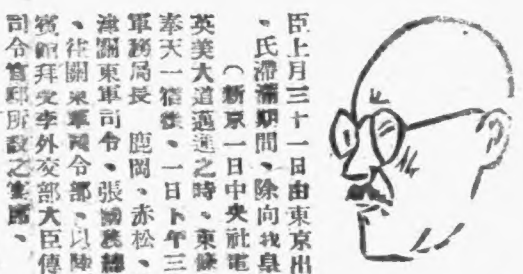 臣上月三十一日由東京出
、氏滯滿期間、除向我皇
（新京一日中央社電
英美大道邁進之時、東條
奉天一宿後、一日下午三
軍務局長　鹿岡、赤松、
津關東軍司令、張國務總
、往關東軍司令部、以陸
賓館拜受李外交部大臣傳
司令官邸所設之宴席、